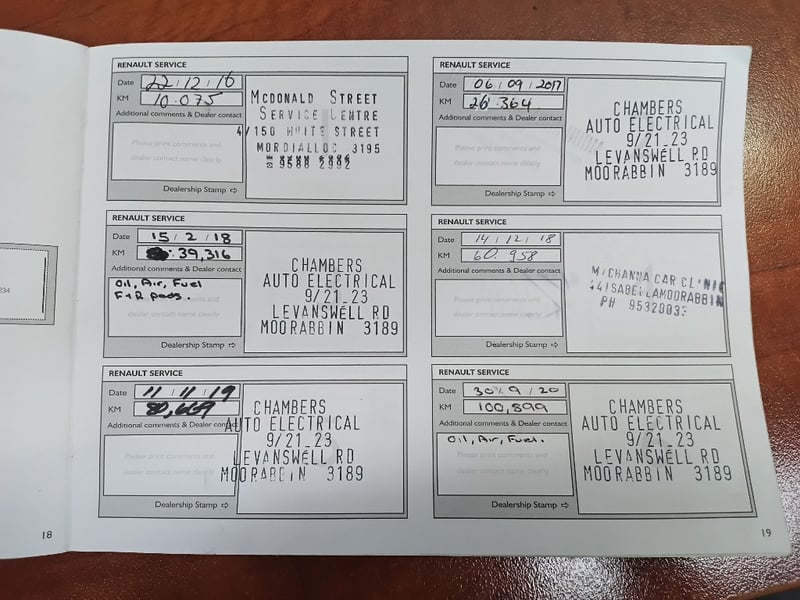 RENAULT SERVICE
Date 22/12/16
KM 10.075
Additional comments & Dealer contact
Please print comments and
dealer contact name clearly
Dealership Stamp
MCDONALD STREET
SERVICE CENTRE
4/150 WHITE STREET
MORDIALLOC 3195
RENAULT SERVICE
Date 06/09/2017
KM 26.364
Additional comments & Dealer contact
Please print comments and
dealer contact name clearly
Dealership Stamp
CHAMBERS
AUTO ELECTRICAL
9/21-23
LEVANSWELL RD
MOORABBIN 3189
RENAULT SERVICE
Date 15/2/18
KM 39,316
Additional comments & Dealer contact
Oil, Air, Fuel
F+R pads.
Dealership Stamp
CHAMBERS
AUTO ELECTRICAL
9/21-23
LEVANSWELL RD
MOORABBIN 3189
RENAULT SERVICE
Date 14/12/18
KM 60.958
Additional comments & Dealer contact
Please print comments and
dealer contact name clearly
Dealership Stamp
MICHANNA CAR CLINIC
MOORABBIN
PH
RENAULT SERVICE
Date 11/11/19
KM
Additional comments & Dealer contact
Please print comments and
dealer contact name clearly
Dealership Stamp
CHAMBERS
AUTO ELECTRICAL
9/21-23
LEVANSWELL RD
MOORABBIN 3189
RENAULT SERVICE
Date 30/9/20
KM 100,899
Additional comments & Dealer contact
Oil, Air, Fuel.
Please print comments and
dealer contact name clearly
Dealership Stamp
CHAMBERS
AUTO ELECTRICAL
9/21-23
LEVANSWELL RD
MOORABBIN 3189
234
18
19